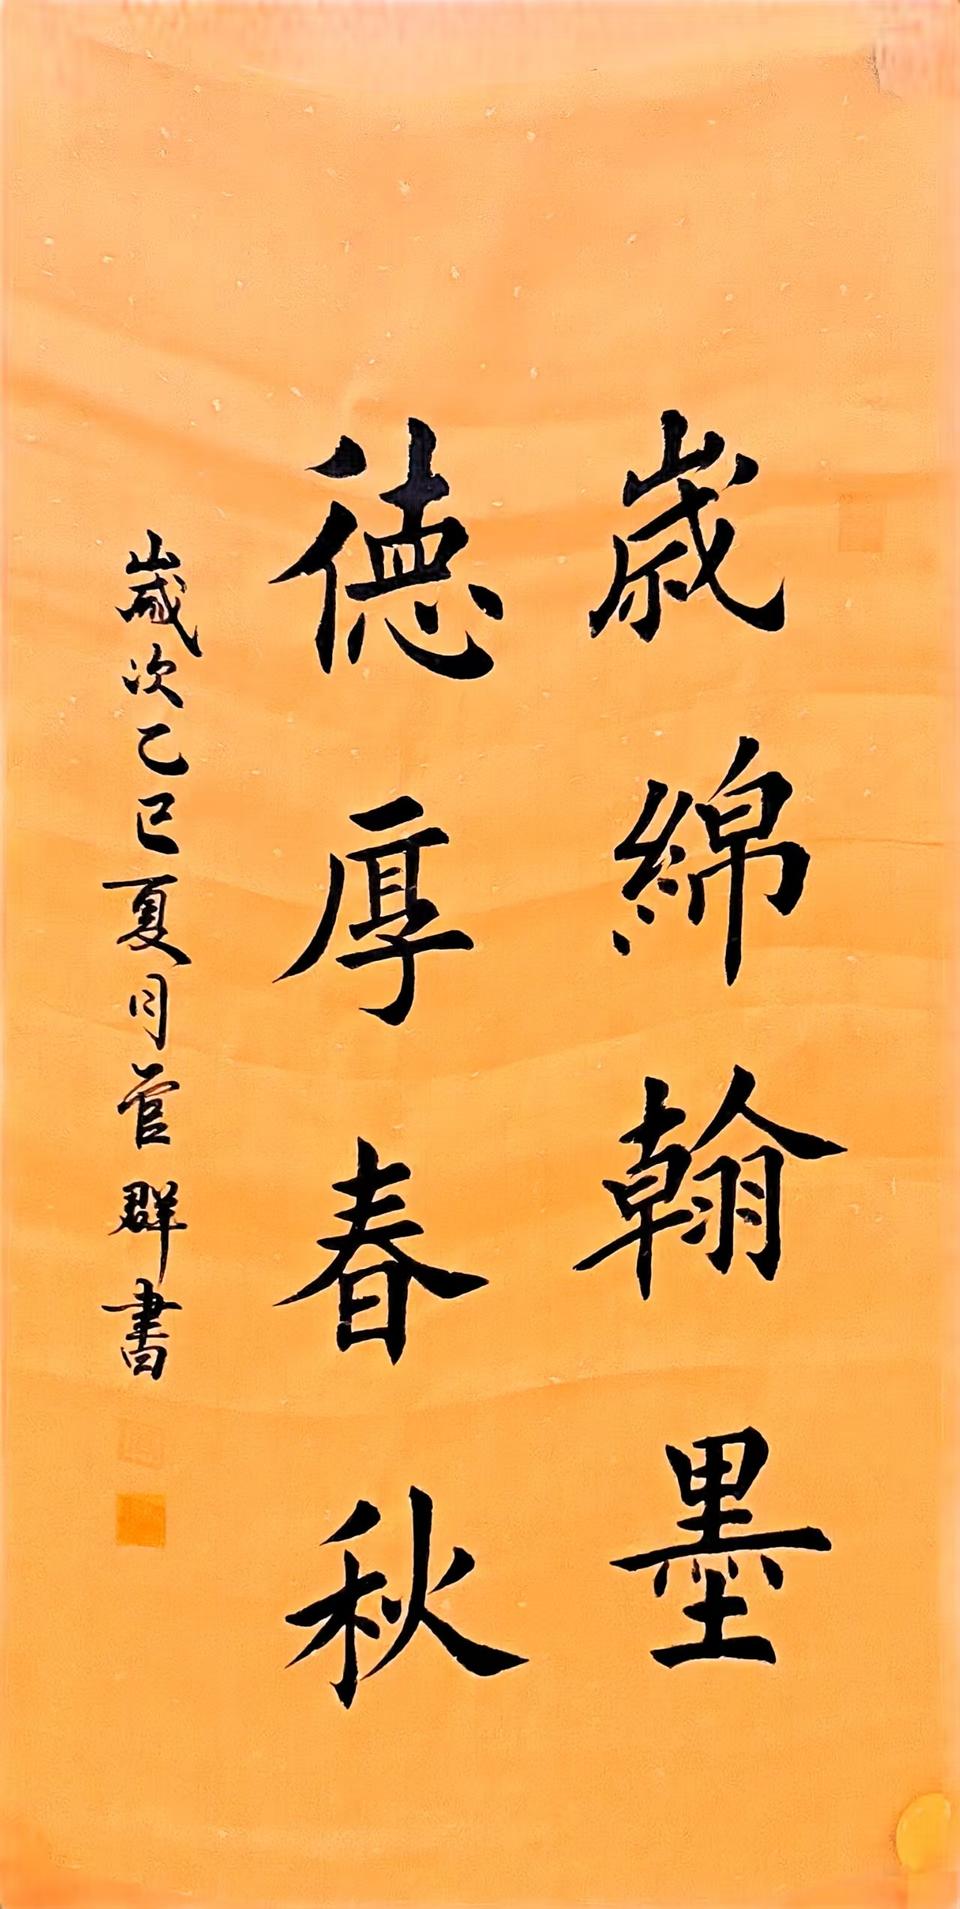 歳綿翰墨
徳厚春秋
歲次乙巳夏月管群書